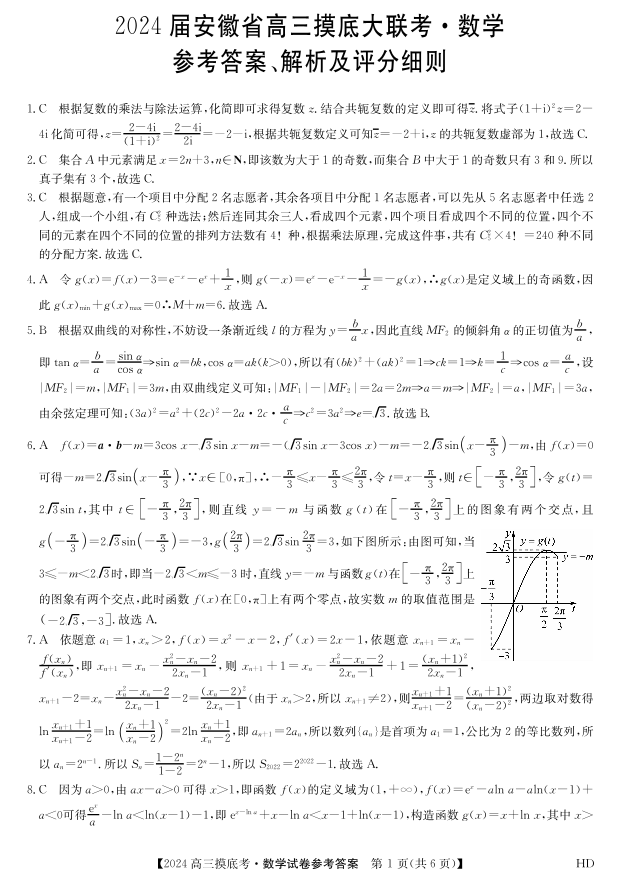 2024 届安徽省高三摸底大联考·数学
参考答案、解析及评分细则
1. C 根据复数的乘法与除法运算,化简即可求得复数 z. 结合共轭复数的定义即可得z̅. 将式子(1+i)²z=2-
4i 化简可得, z=(2-4i)/(1+i)²=(2-4i)/2i=-2-i, 根据共轭复数定义可知z̅=-2+i, z 的共轭复数虚部为 1, 故选 C.
2. C 集合 A 中元素满足 x=2n+3, n∈N, 即该数为大于 1 的奇数, 而集合 B 中大于 1 的奇数只有 3 和 9. 所以
真子集有 3 个, 故选 C.
3. C 根据题意, 有一个项目中分配 2 名志愿者, 其余各项目中分配 1 名志愿者, 可以先从 5 名志愿者中任选 2
人, 组成一个小组, 有 C₅² 种选法; 然后连同其余三人, 看成四个元素, 四个项目看成四个不同的位置, 四个不
同的元素在四个不同的位置的排列方法数有 4! 种, 根据乘法原理, 完成这件事, 共有 C₅²×4! =240 种不同
的分配方案. 故选 C.
4. A 令 g(x)=f(x)-3=e⁻ˣ-eˣ+1/x, 则 g(-x)=eˣ-e⁻ˣ-1/x=-g(x), ∴g(x)是定义域上的奇函数, 因
此 g(x)min+g(x)max=0∴M+m=6. 故选 A.
5. B 根据双曲线的对称性, 不妨设一条渐近线 l 的方程为 y=b/a x, 因此直线 MF₂ 的倾斜角 α 的正切值为b/a,
即 tan α=b/a=sin α/cos α⇒sin α=bk, cos α=ak(k>0), 所以有(bk)²+(ak)²=1⇒ck=1⇒k=1/c⇒cos α=a/c, 设
|MF₂|=m, |MF₁|=3m, 由双曲线定义可知: |MF₁|-|MF₂|=2a=2m⇒a=m⇒|MF₂|=a, |MF₁|=3a,
由余弦定理可知: (3a)²=a²+(2c)²-2a·2c·a/c⇒c²=3a²⇒e=√3. 故选 B.
6. A f(x)=a·b-m=3cos x-√3sin x-m=-(√3sin x-3cos x)-m=-2√3sin(x-π/3)-m, 由 f(x)=0
可得-m=2√3sin(x-π/3), ∵x∈[0,π], ∴-π/3≤x-π/3≤2π/3, 令 t=x-π/3, 则 t∈[-π/3, 2π/3], 令 g(t)=
2√3sin t, 其中 t∈[-π/3, 2π/3], 则直线 y=-m 与函数 g(t)在[-π/3, 2π/3]上的图象有两个交点, 且
g(-π/3)=2√3sin(-π/3)=-3, g(2π/3)=2√3sin 2π/3=3, 如下图所示: 由图可知, 当
3≤-m<2√3时, 即当-2√3<m≤-3 时, 直线 y=-m 与函数 g(t)在[-π/3, 2π/3]上
的图象有两个交点, 此时函数 f(x)在[0,π]上有两个零点, 故实数 m 的取值范围是
(-2√3, -3]. 故选 A.
y
2√3
3
y=g(t)
y=-m
-π/3
O
π/2
2π/3
t
-3
7. A 依题意 a₁=1, xₙ>2, f(x)=x²-x-2, f′(x)=2x-1, 依题意 xₙ₊₁=xₙ-
f(xₙ)/f′(xₙ), 即 xₙ₊₁=xₙ-(xₙ²-xₙ-2)/(2xₙ-1), 则 xₙ₊₁+1=xₙ-(xₙ²-xₙ-2)/(2xₙ-1)+1=(xₙ+1)²/(2xₙ-1),
xₙ₊₁-2=xₙ-(xₙ²-xₙ-2)/(2xₙ-1)-2=(xₙ-2)²/(2xₙ-1)(由于 xₙ>2, 所以 xₙ₊₁≠2), 则(xₙ₊₁+1)/(xₙ₊₁-2)=(xₙ+1)²/(xₙ-2)², 两边取对数得
ln (xₙ₊₁+1)/(xₙ₊₁-2)=ln((xₙ+1)/(xₙ-2))²=2ln (xₙ+1)/(xₙ-2), 即 aₙ₊₁=2aₙ, 所以数列{aₙ}是首项为 a₁=1, 公比为 2 的等比数列, 所
以 aₙ=2ⁿ⁻¹. 所以 Sₙ=(1-2ⁿ)/(1-2)=2ⁿ-1, 所以 S₂₀₂₂=2²⁰²²-1. 故选 A.
8. C 因为 a>0, 由 ax-a>0 可得 x>1, 即函数 f(x)的定义域为(1,+∞), f(x)=eˣ-aln a-aln(x-1)+
a<0可得eˣ/a-ln a<ln(x-1)-1, 即 eˣ⁻ˡⁿ ᵃ+x-ln a<x-1+ln(x-1), 构造函数 g(x)=x+ln x, 其中 x>
【2024 高三摸底考·数学试卷参考答案 第 1 页(共 6 页)】 HD